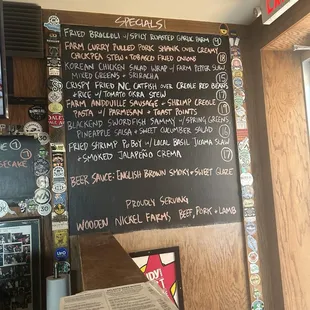 SPECIALS!
FRIED BROCCOLI w/ SPICY ROASTED GARLIC FARM
FARM CURRY PULLED PORK SHANK OVER CREAMY
CHICKPEA STEW + TOBACCO FRIED ONIONS 18
KOREAN CHICKEN SALAD WRAP w/ FARM PETITE
MIXED GREENS + SRIRACHA 15
CRISPY FRIED NC CATFISH OVER CREOLE RED BEANS
+ RICE w/ TOMATO OKRA STEW 17
FARM ANDOUILLE SAUSAGE + SHRIMP CREOLE
PASTA w/ PARMESAN + TOAST POINTS
BLACKENED SWORDFISH SAMMY w/ SPRING GREENS
PINEAPPLE SALSA + SWEET CUCUMBER SALAD
FRIED SHRIMP PO BOY w/ LOCAL BASIL JICAMA SLAW
+ SMOKED JALAPEÑO CREMA 17
BEER SAUCE: ENGLISH BROWN SMOKY + SWEET GLAZE
PROUDLY SERVING
WOODEN NICKEL FARMS, BEEF, PORK + LAMB